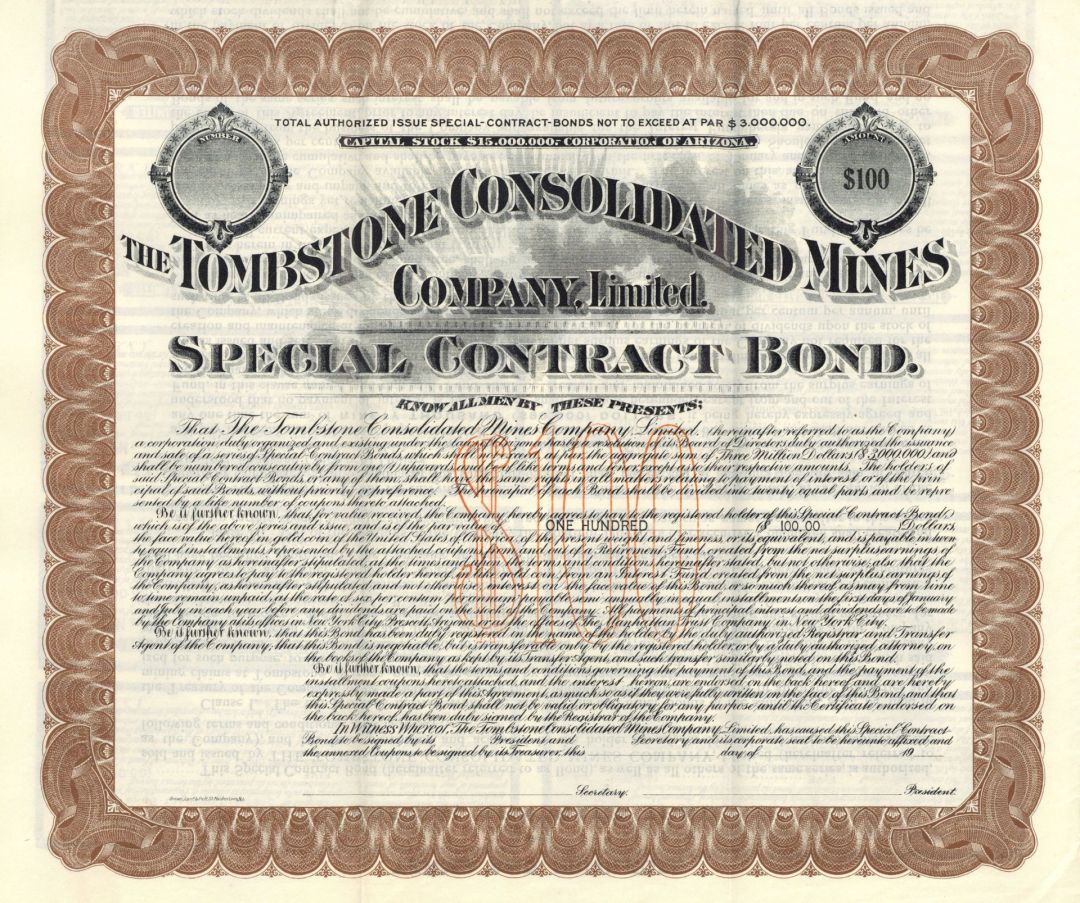 TOTAL AUTHORIZED ISSUE SPECIAL-CONTRACT-BONDS NOT TO EXCEED AT PAR $3.000.000.
CAPITAL STOCK $15.000.000,- CORPORATION OF ARIZONA.
NUMBER
AMOUNT
$100
THE TOMBSTONE CONSOLIDATED MINES
COMPANY, Limited.
SPECIAL CONTRACT BOND.
KNOW ALL MEN BY THESE PRESENTS;
That The Tombstone Consolidated Mines Company, Limited, (hereinafter referred to as the Company)
a corporation duly organized and existing under the laws of Arizona, has by resolution of its Board of Directors duly authorized the issuance
and sale of a series of Special-Contract Bonds, which shall not exceed the aggregate sum of Three Million Dollars ($3,000,000) and
shall be numbered consecutively from one upwards, and be of like tenor and date, except as to their respective amounts. The holders of
said Special Contract Bonds, or any of them, shall have the same rights and liens as relating to payment of interest or of the prin-
cipal of said Bonds, without priority or preference. The principal of each Bond shall be divided into twenty equal parts and be repre-
sented by a like number of coupons thereto attached.
Be it further known, that for value received, the Company hereby agrees to pay to the registered holder of this Special-Contract Bond,
which is of the above series and issue, and is of the par value of ONE HUNDRED ($ 100.00 ) Dollars,
the face value hereof in gold coin of the United States of America, of the present weight and fineness or its equivalent, and is payable in twen-
ty equal installments, represented by the attached coupons, from the Bond Retirement Fund, created from the net surplus earnings of
the Company as hereinafter stipulated, at the times and in the manner hereinafter stated, but not otherwise; also that the
Company agrees to pay to the registered holder hereof in like gold coin from an Interest Fund created from the net surplus earnings of
the Company, as hereinafter stipulated, and not otherwise, interest on the face value of this Bond, or so much thereof as may from time
to time remain unpaid, at the rate of six per centum per annum, payable semi-annually in equal installments on the first days of January
and July in each year before any dividends are paid on the stock of the Company. All payments of principal, interest and dividends are to be made
by the Company at its offices in New York City, Prescott, Arizona, or at the office of the Manhattan Trust Company in New York City.
Be it further known, that this Bond has been duly registered in the name of the holder by the duly authorized Registrar and Transfer
Agent of the Company; that this Bond is negotiable, but is transferable only by the registered holder, or by a duly authorized attorney, on
the books of the Company as kept by its Transfer Agent, and such transfer similarly noted on this Bond.
Be it further known, that the terms and conditions governing the payment of this Bond, and the payment of the
installment coupons hereto attached, and the interest thereon, are endorsed on the back hereof and are hereby
expressly made a part of this Agreement, as much so as if they were fully written on the face of this Bond, and that
this Special-Contract Bond shall not be valid or obligatory for any purpose until the Certificate endorsed on
the back hereof has been duly signed by the Registrar of the Company.
In Witness Whereof, The Tombstone Consolidated Mines Company, Limited, has caused this Special Contract-
Bond to be signed by its President and Secretary and its corporate seal to be hereunto affixed and
the annexed Coupons to be signed by its Treasurer this day of 19
Secretary. President.
$100